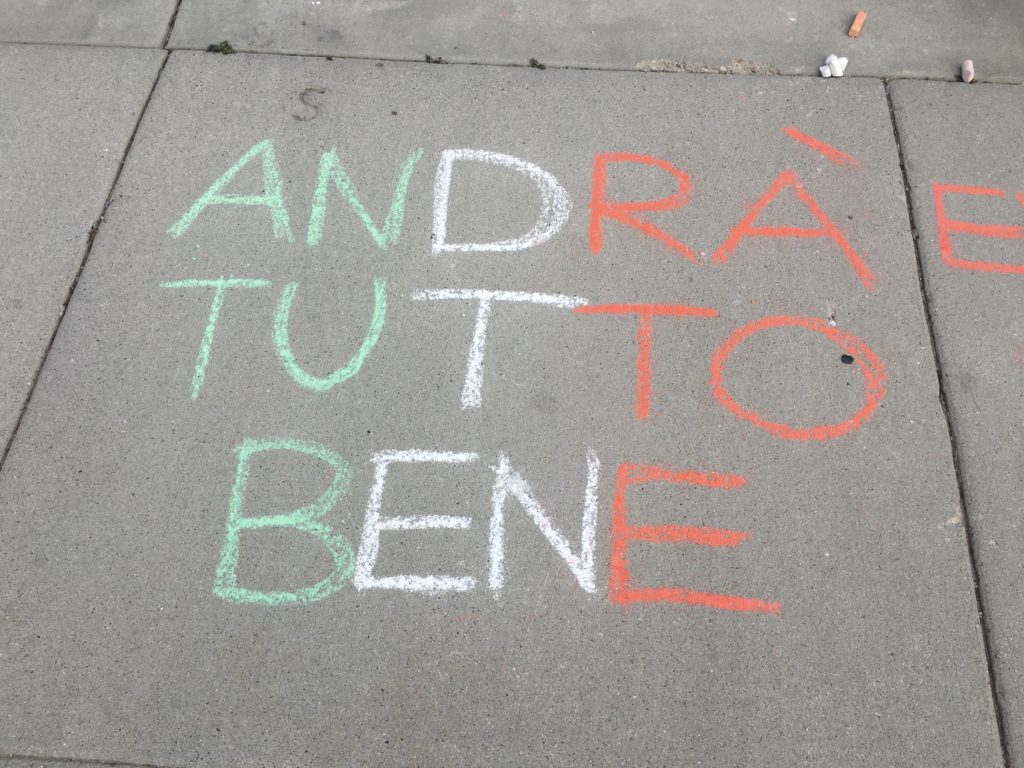 S
ANDRÀ
TUTTO
BENE
E